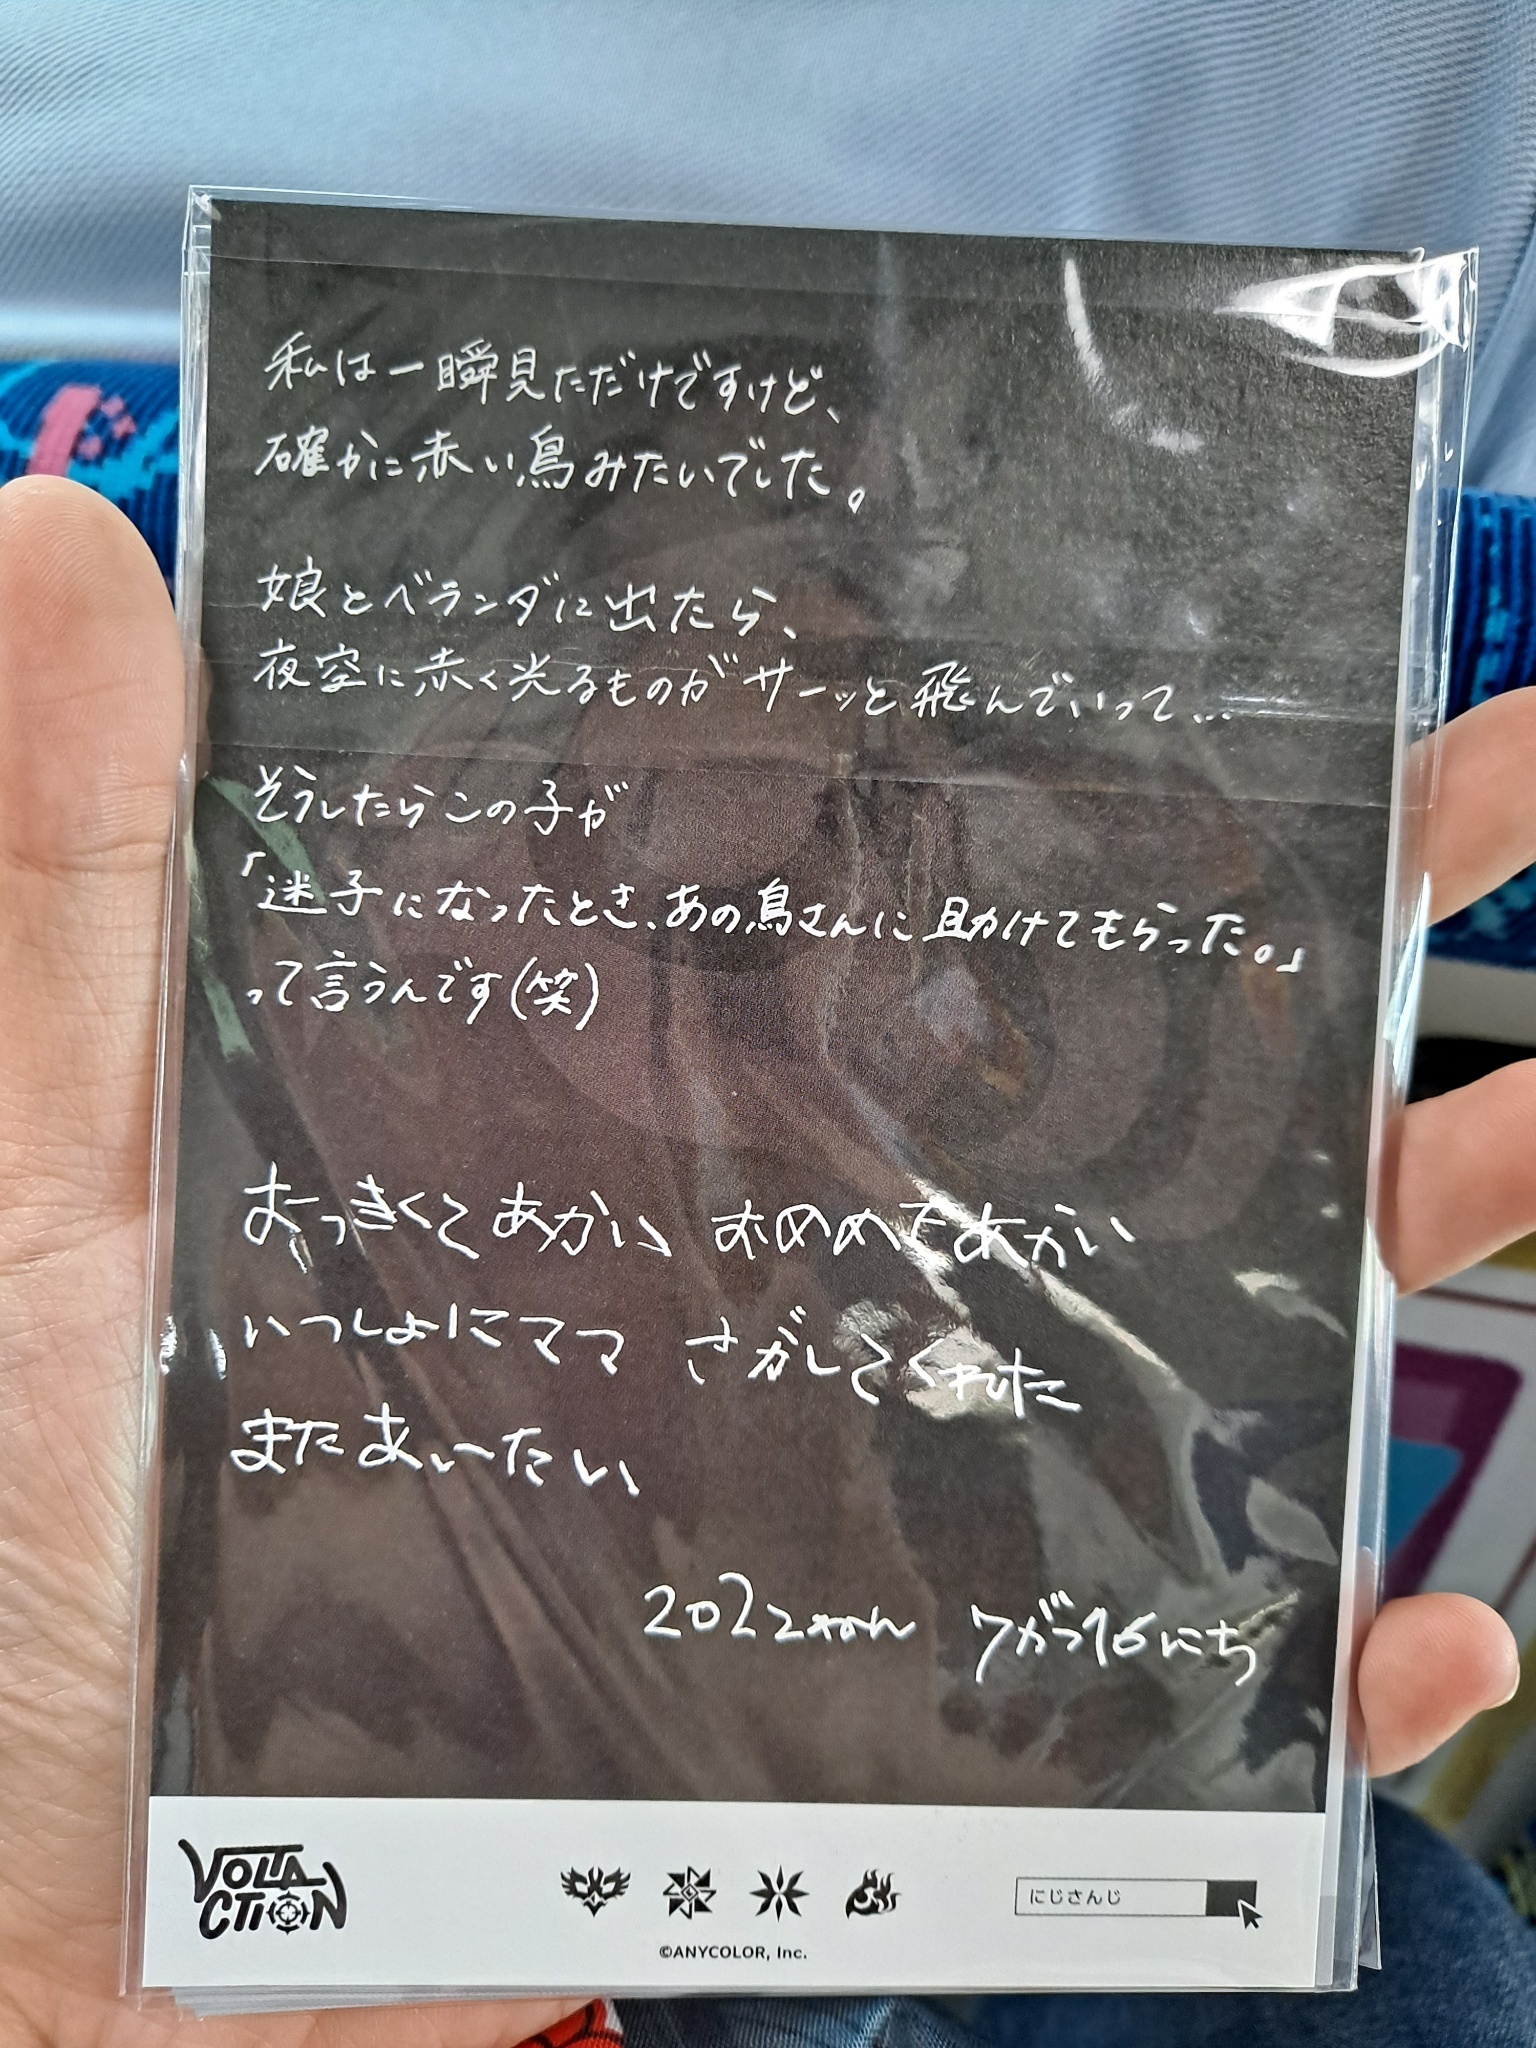 私は一瞬見ただけですけど、
確かに赤い鳥みたいでした。
娘とベランダに出たら、
夜空に赤く光るものがサーッと飛んでいって…
そうしたらこの子が
「迷子になったとき、あの鳥さんに助けてもらった。」
って言うんです(笑)
おっきくてあかい おめめてあかい
いっしょにママ さがしてくれた
またあいたい
2022ねん 7がつ16にち
VOLTACTION
にじさんじ
©ANYCOLOR, Inc.